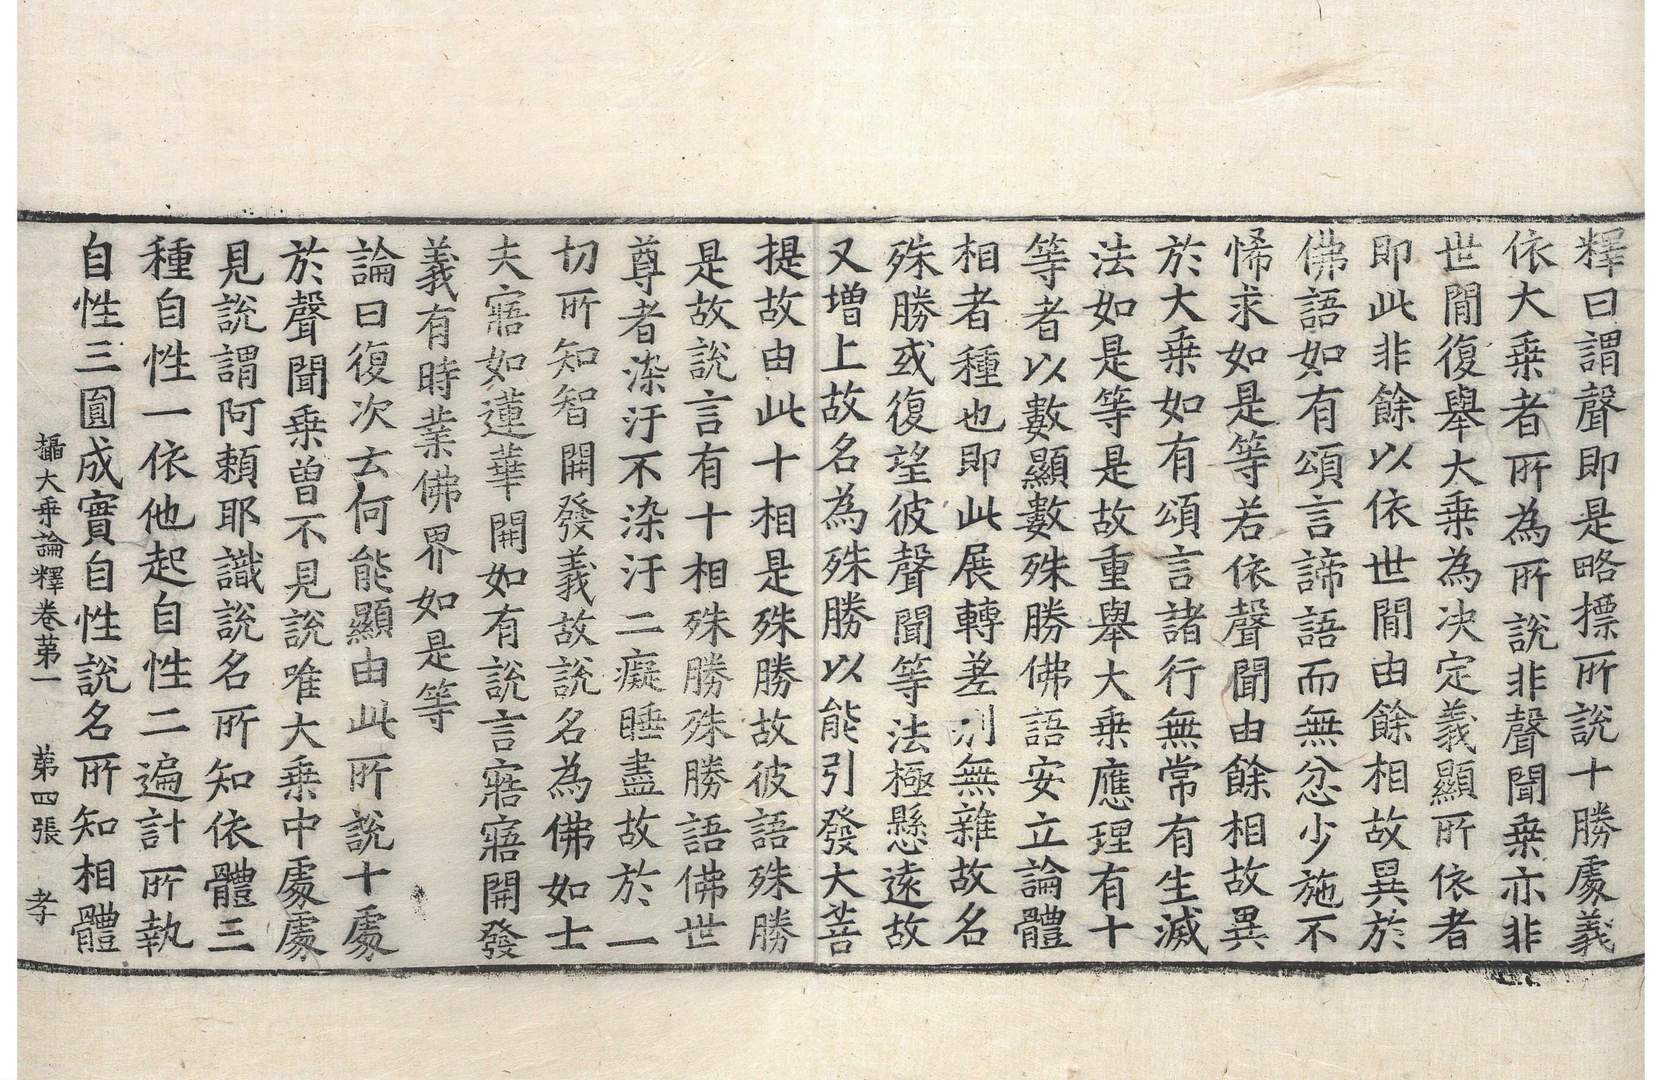 釋曰謂聲即是略摽所說十勝處義
依大乗者所為所說非聲聞乗亦非
世間復舉大乗為决定義顯所依者
即此非餘以依世間由餘相故異於
佛語如有頌言諦語而無忿少施不
悕求如是等若依聲聞由餘相故異
於大乗如有頌言諸行無常有生滅
法如是等是故重舉大乗應理有十
等者以數顯數殊勝佛語安立論體
相者種也即此展轉差别無雜故名
殊勝或復望彼聲聞等法極懸遠故
又增上故名為殊勝以能引發大菩
提故由此十相是殊勝故彼語殊勝
是故說言有十相殊勝殊勝語佛世
尊者染汙不染汙二癡睡盡故於一
切所知智開發義故說名為佛如士
夫寤如蓮華開如有說言寤寤開發
義有時業佛界如是等
論曰復次云何能顯由此所說十處
於聲聞乗曾不見說唯大乗中處處
見說謂阿賴耶識說名所知依體三
種自性一依他起自性二遍計所執
自性三圓成實自性說名所知相體
攝大乗論釋卷苐一 苐四張 孝